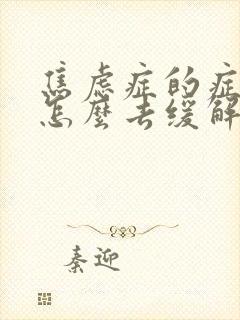 焦虑症的症
怎麼去缓解
秦迎